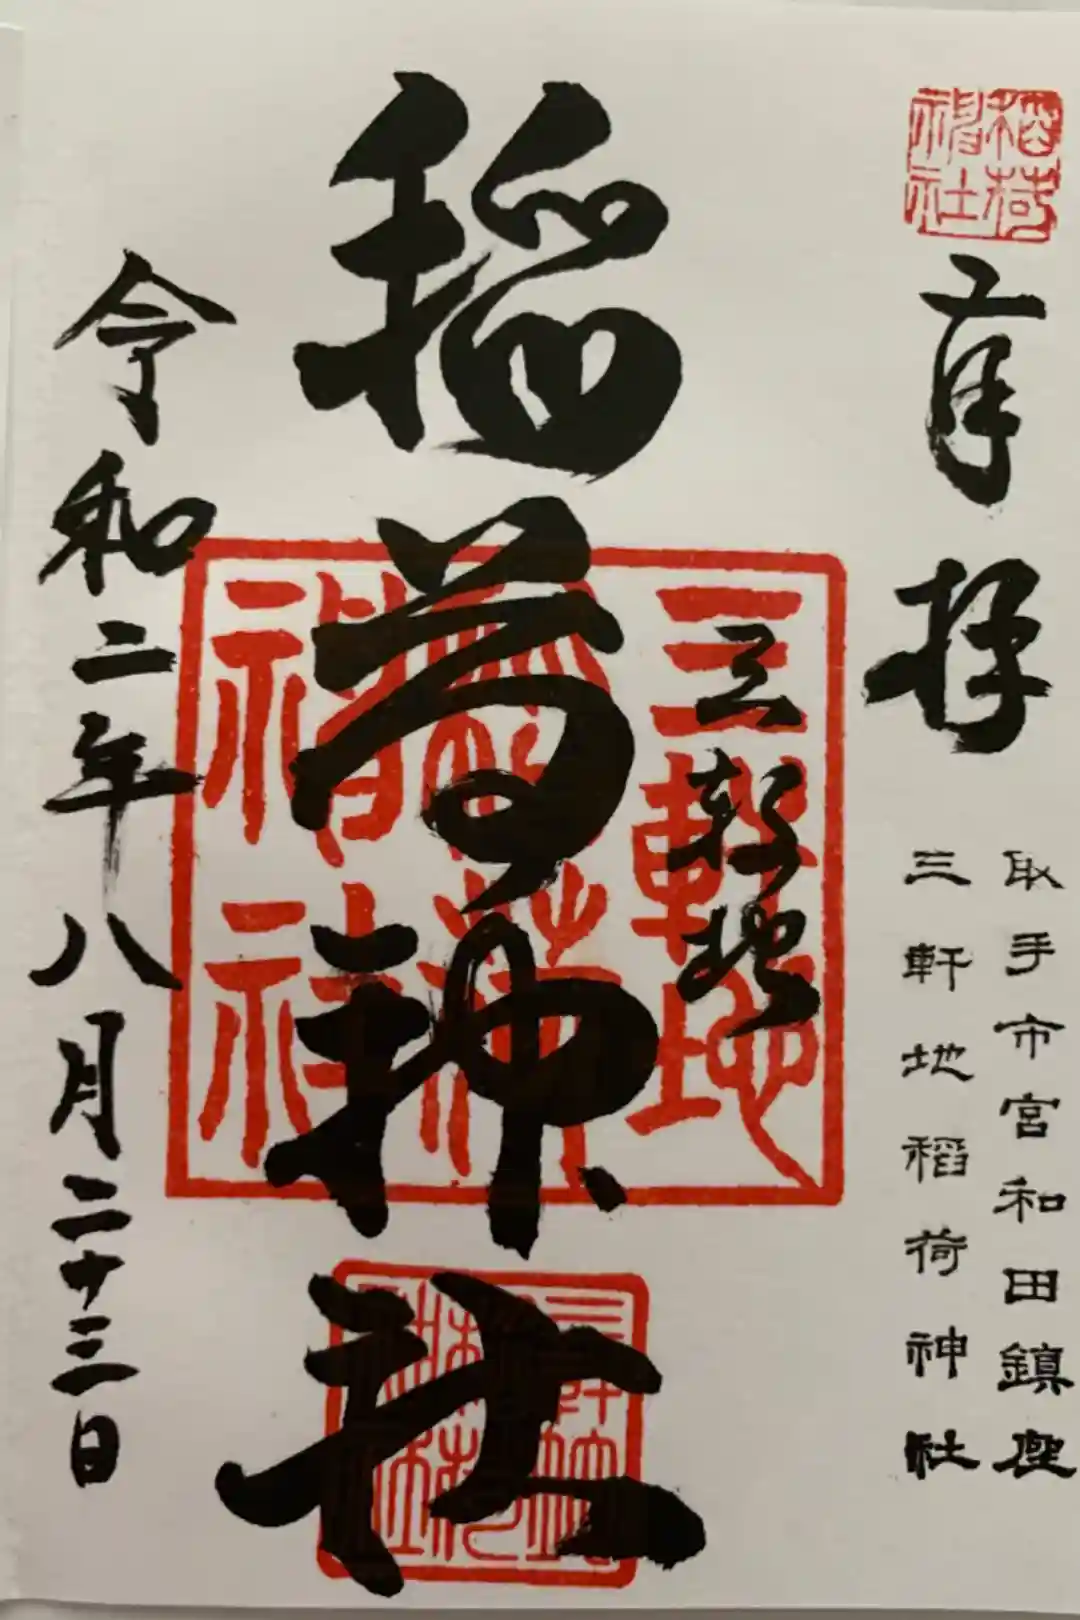 稲荷神社
奉拝
取手市宮和田鎮座
三軒地稲荷神社
三軒地
稲荷神社
三軒地稲荷神社
三軒地稲荷神社
令和二年八月二十三日